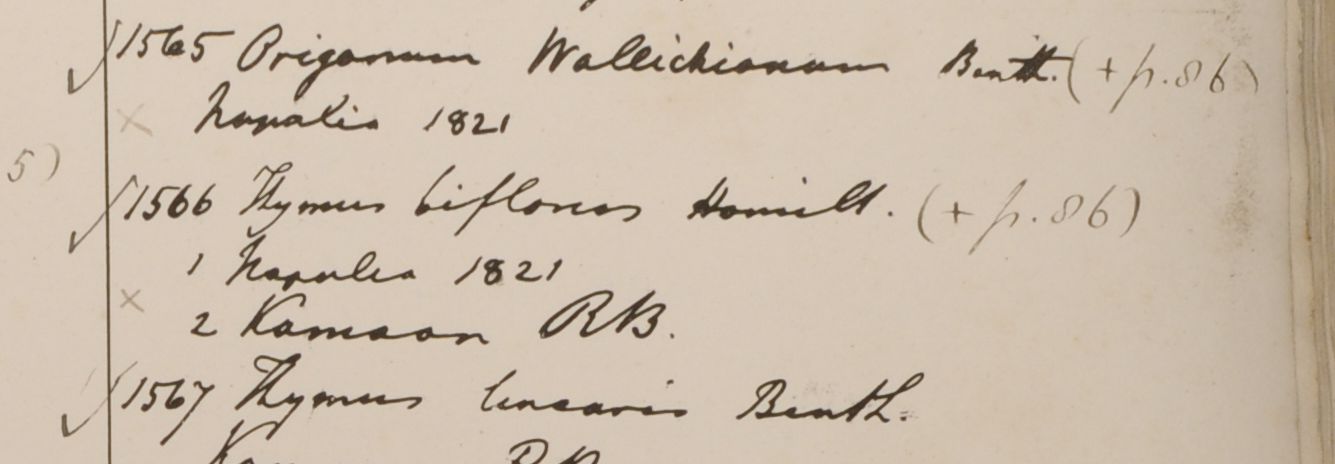 1565 Origanum Wallichianum Benth. (+ p. 86)
Napalia 1821
5)
1566 Thymus biflorus Hamilt. (+ p. 86)
1 Napalia 1821
2 Kamaon RB.
1567 Thymus linearis Benth.